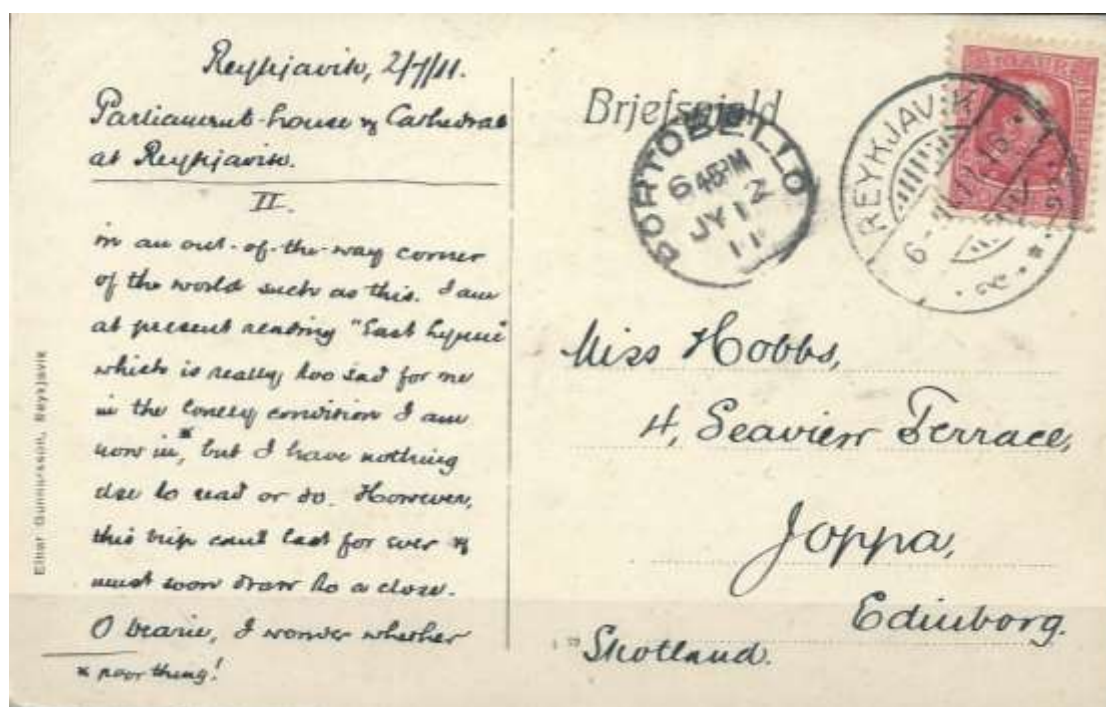 Reykjavik, 2/7/11.
Parliament-house & Cathedral
at Reykjavik.
II.
in an out-of-the-way corner
of the world such as this. I am
at present reading "East Lynne"
which is really too sad for me
in the lonely condition I am
now in*, but I have nothing
else to read or do. However,
this trip can't last for ever &
must soon draw to a close.
O dearie, I wonder whether
* poor thing!
Einar Gunnarsson, Reykjavik
Brjefspjald
PORTOBELLO
6 45 PM
JY 12
11
REYKJAVIK
Miss Hobbs,
4, Seaview Terrace,
Joppa,
Edinborg.
Skotland.